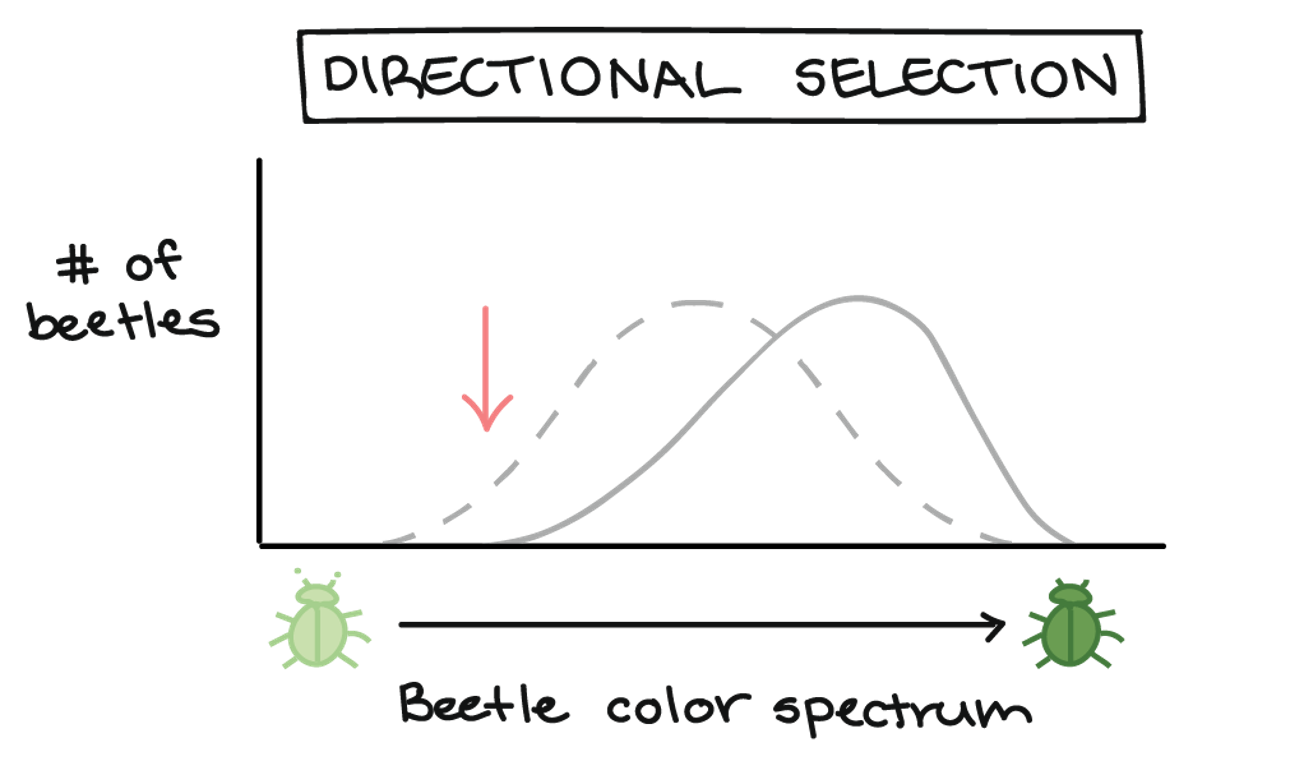 DIRECTIONAL SELECTION
# of
beetles
Beetle color spectrum